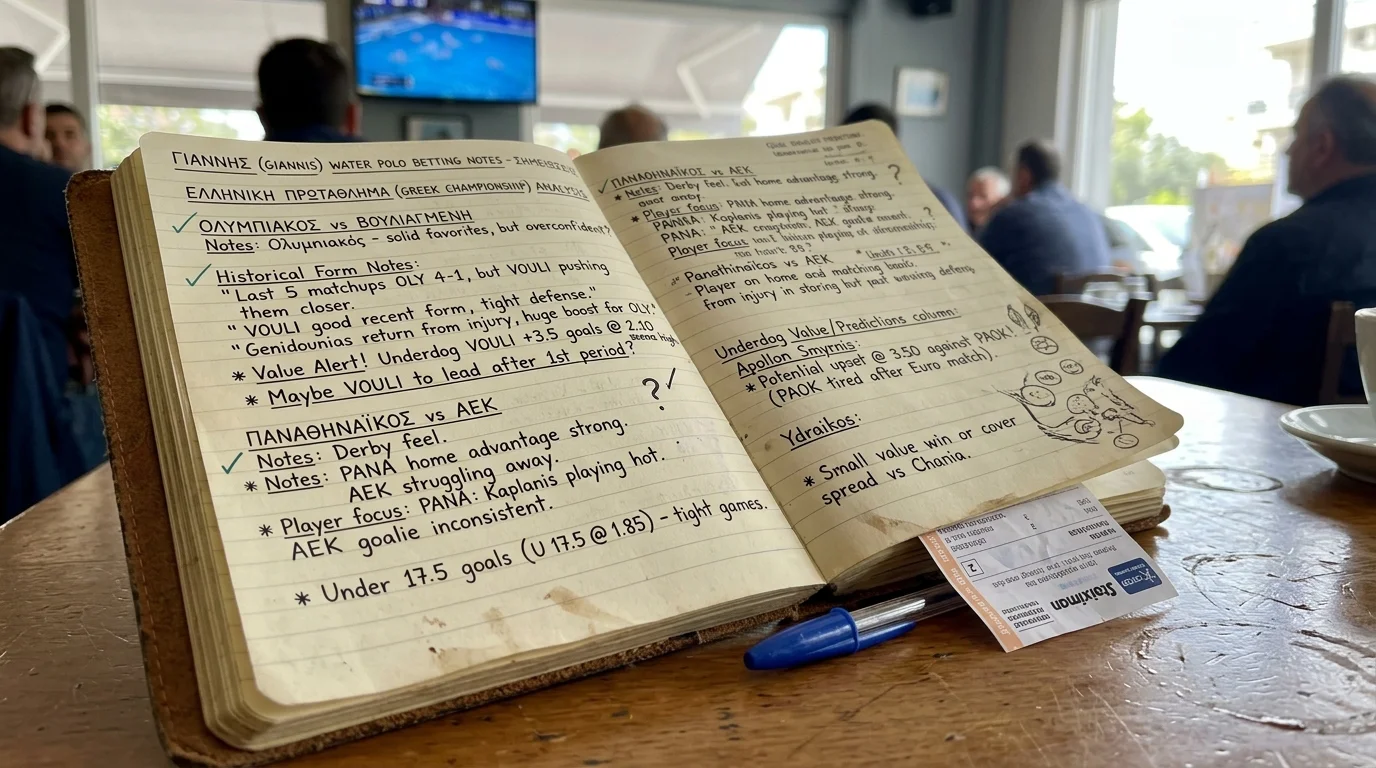 ΓΙΑΝΝΗΣ (GIANNIS) WATER POLO BETTING NOTES -
ΕΛΛΗΝΙΚΗ ΠΡΩΤΑΘΛΗΜΑ (GREEK CHAMPIONSHIP) ANALYSIS
✓ ΟΛΥΜΠΙΑΚΟΣ vs ΒΟΥΛΙΑΓΜΕΝΗ
Notes: Ολυμπιακός - solid favorites, but overconfident?
✓ Historical Form Notes:
"Last 5 matchups OLY 4-1, but VOULI pushing
them closer.
"VOULI good recent form, tight defense."
"Genidounias return from injury, huge boost for OLY."
* Value Alert! Underdog VOULI +3.5 goals @ 2.10
high
* Maybe VOULI to lead after 1st period?
ΠΑΝΑΘΗΝΑΪΚΟΣ vs ΑΕΚ ? ✓
✓ Notes: Derby feel.
* Notes: PANA home advantage strong.
AEK struggling away.
* Player focus: PANA: Kaplanis playing hot.
AEK goalie inconsistent.
* Under 17.5 goals (U 17.5 @ 1.85) - tight games.
✓ vs ΑΕΚ ?
* Notes: Derby feel, home advantage strong.
* Player focus: home advantage strong.
Kaplanis playing hot -
PANA: " AEK AEK ?
Player focus playing
vs AEK
- Player on home and matching
from injury in storing but past defens,
Underdog Value/Predictions column:
Apollon Smyrnis:
* Potential upset @ 3.50 against PAOK!
(PAOK tired after Euro match).
Ydraikos:
* Small value win or cover
spread vs Chania.
Stoiximan
2